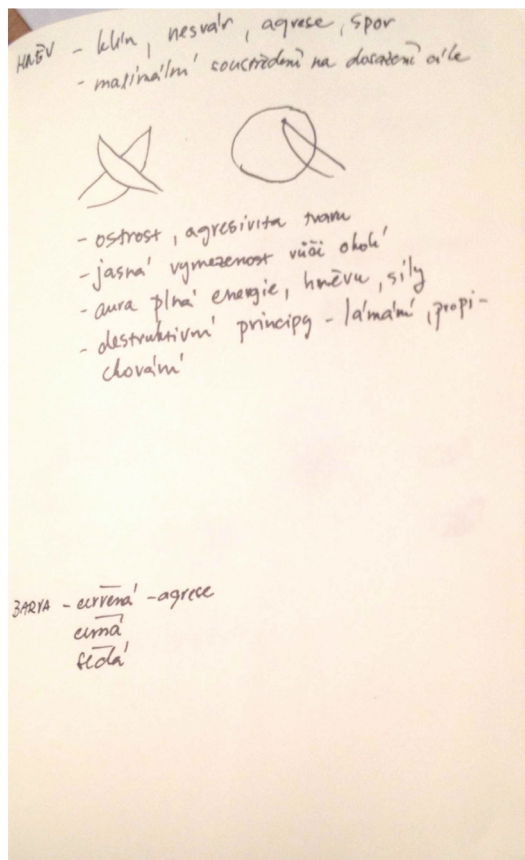 HNĚV - klín, nesvár, agrese, spor
- maximální soustředění na dosažení cíle
- ostrost, agresivita tvaru
- jasná vymezenost vůči okolí
- aura plná energie, hněvu, síly
- destruktivní principy - lámání, propi-
chování
BARVA - červená - agrese
černá
šedá